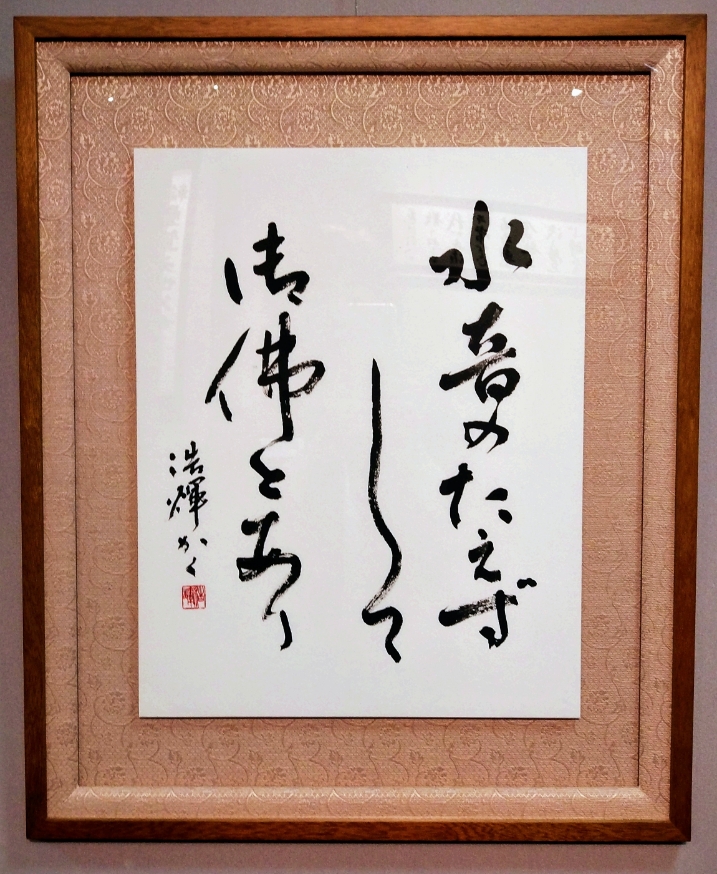 水音のたえず
して
御佛とあり
浩輝かく